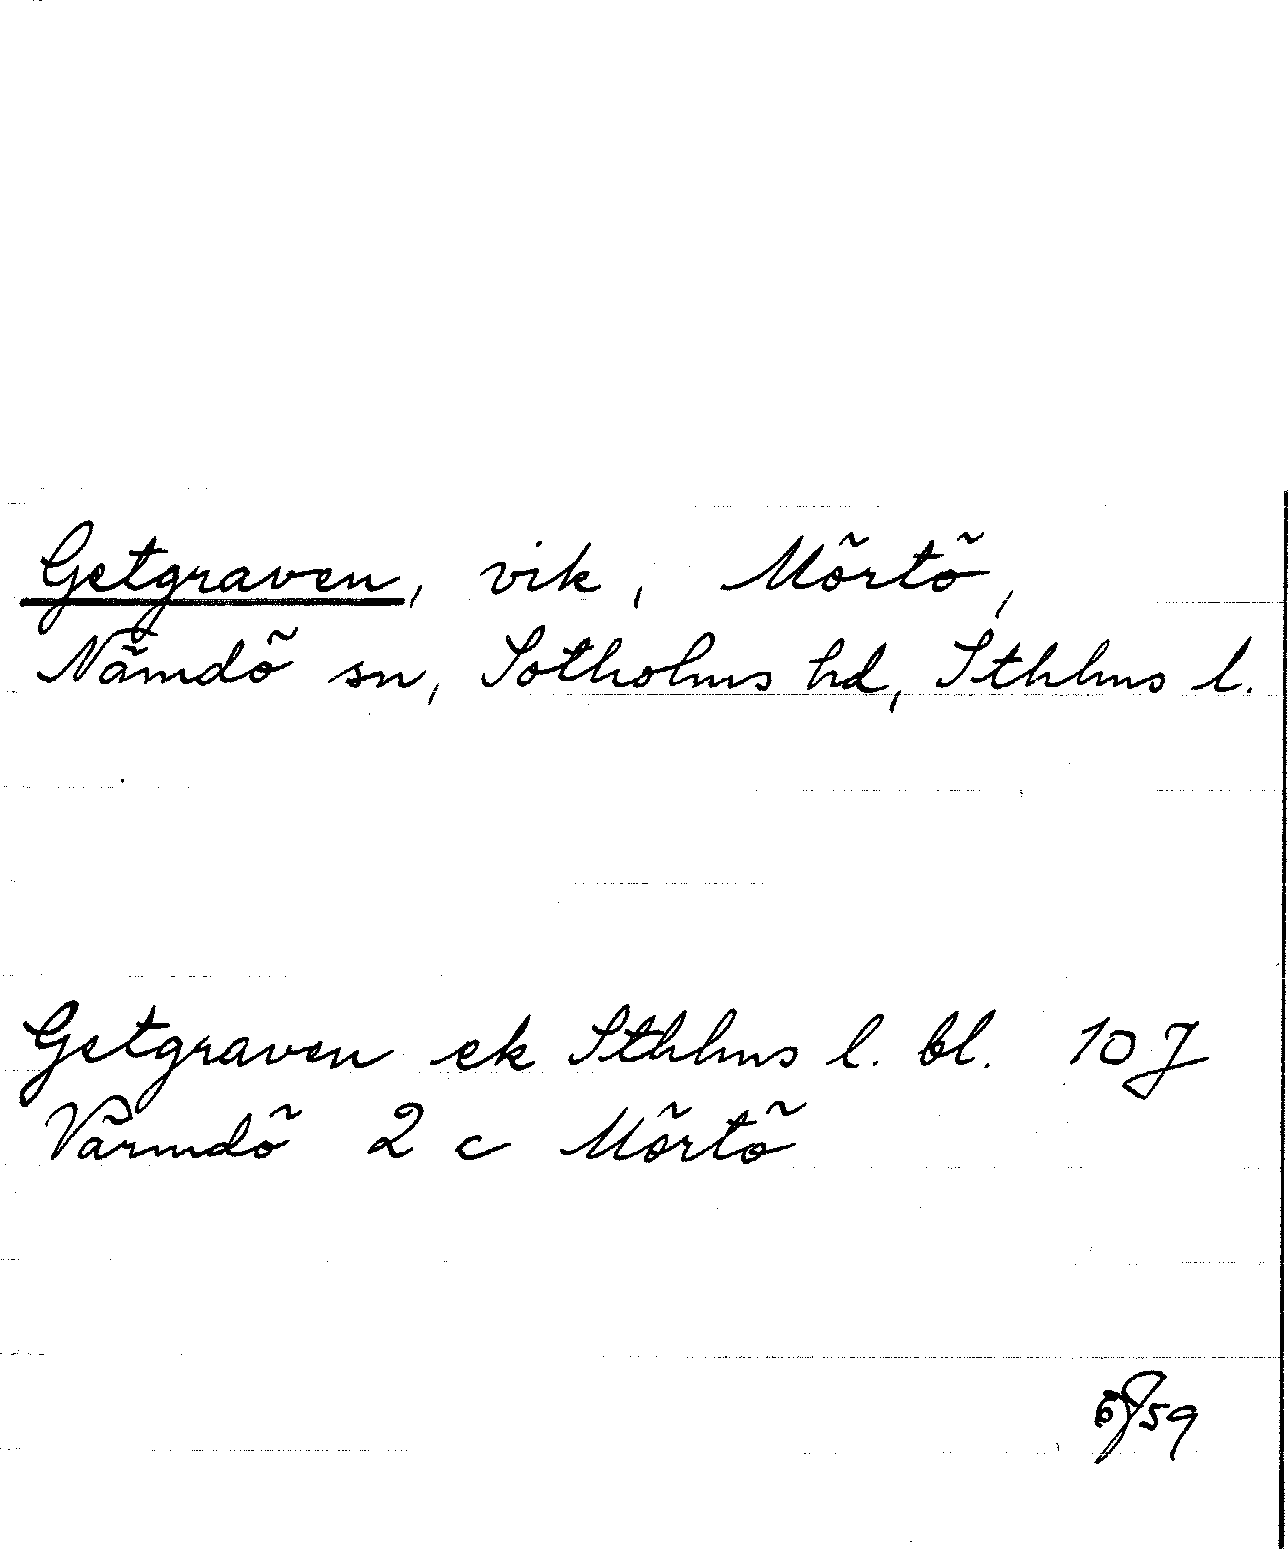 Getgraven, vik, Mörtö,
Nämdö sn, Sotholms hd, Sthlms l.
Getgraven ek Sthlms l. bl. 107
Värmdö 2 c Mörtö